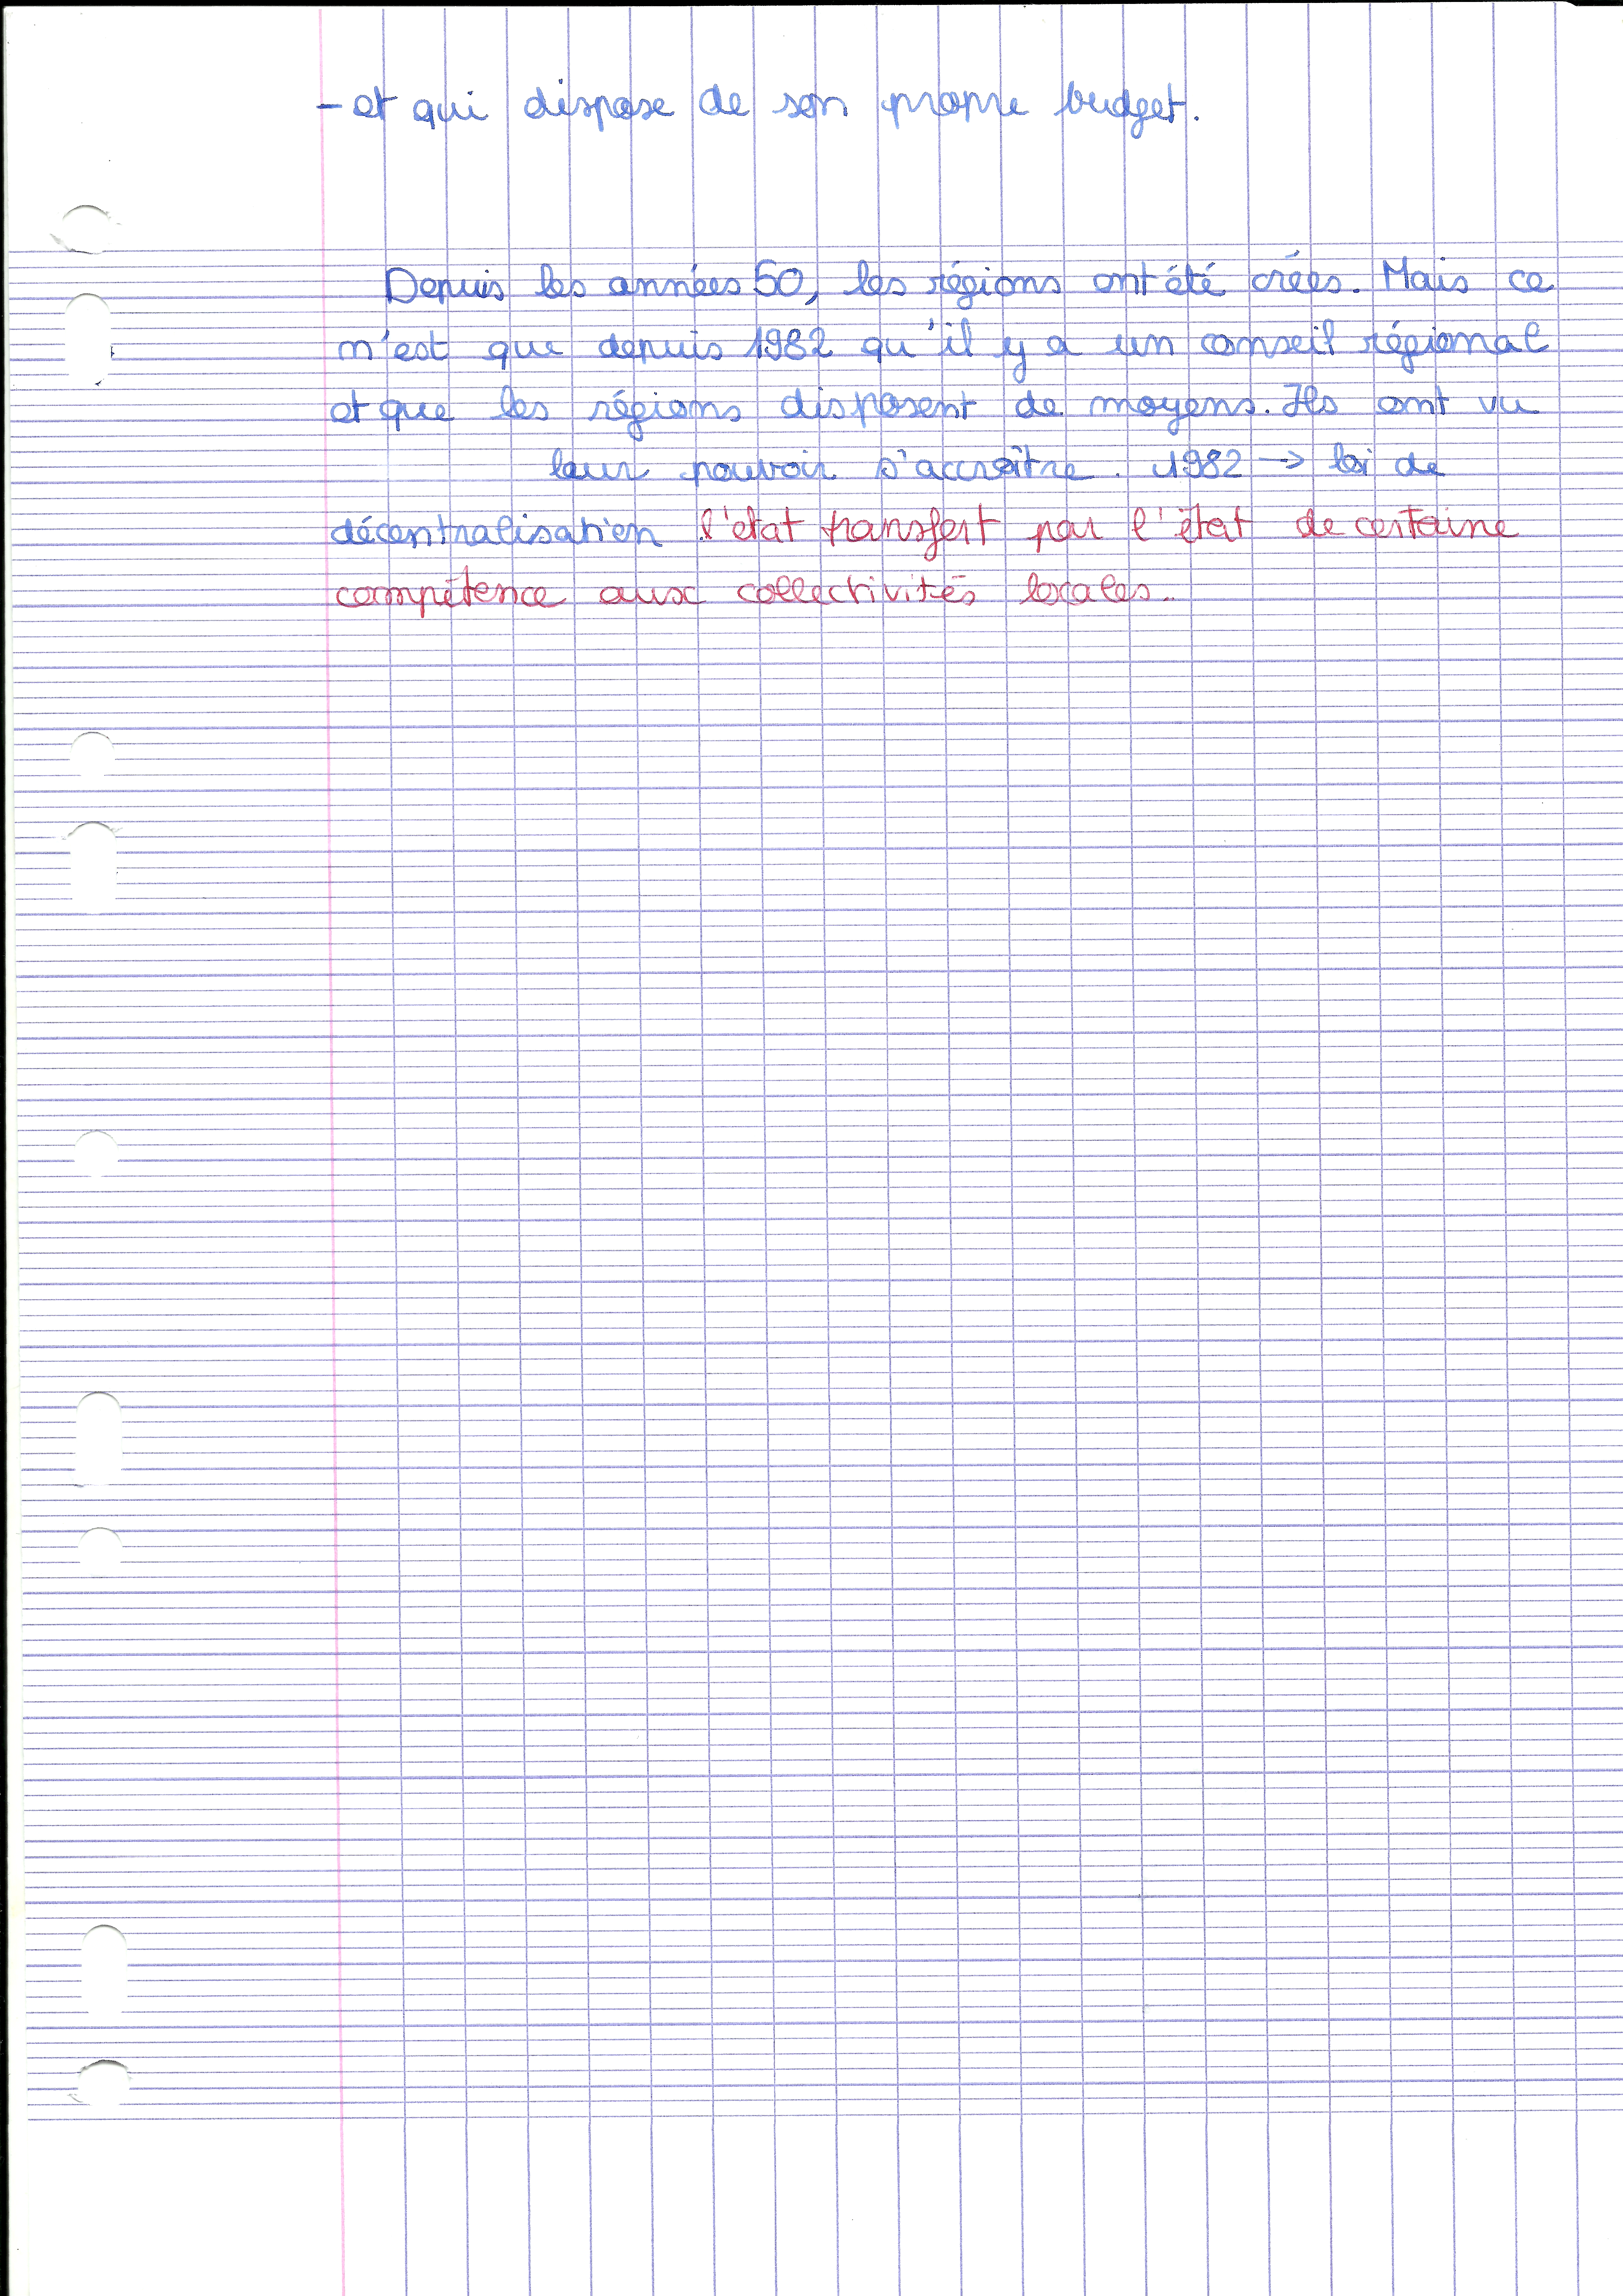 - et qui dispose de son propre budget.
Depuis les années 50, les régions ont été crées. Mais ce
n'est que depuis 1982 qu'il y a un conseil régional
et que les régions disposent de moyens. Ils ont vu
leur pouvoir s'accroître. 1982 → loi de
décentralisation l'etat transfert par l'état de certaine
compétence aux collectivités locales.